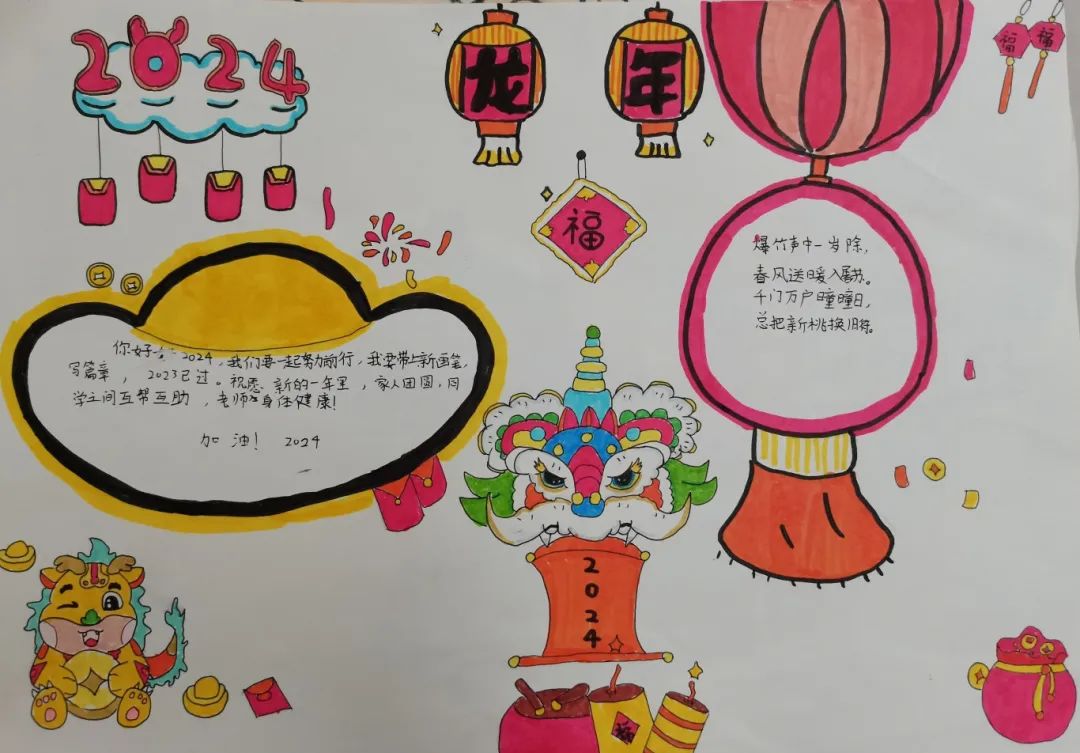 2024
龙年
福
福
福
你好 2024，我们要一起努力前行，我要带上新画笔，
写篇章，2023已过。祝愿 新的一年里，家人团圆，同
学之间互帮互助，老师 身体健康！
加油！ 2024
爆竹声中一岁除，
春风送暖入屠苏。
千门万户曈曈日，
总把新桃换旧符。
2024
福